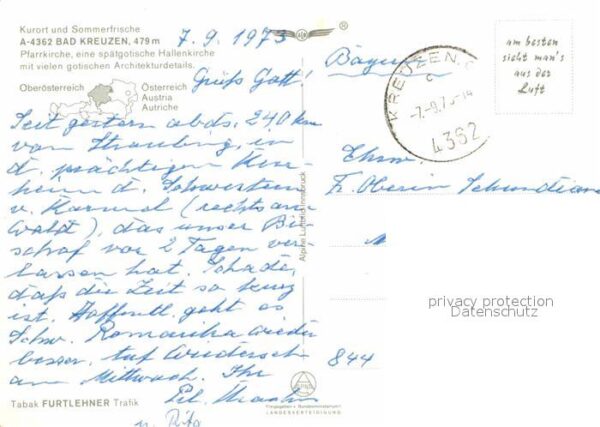 Kurort und Sommerfrische
A-4362 BAD KREUZEN, 479 m
Pfarrkirche, eine spätgotische Hallenkirche
mit vielen gotischen Architekturdetails.
Oberösterreich
Österreich
Austria
Autriche
7.9.1973
Grüß Gott!
Seit gestern abds. 240 km
von Straubing, in
d. prächtigen Kur-
heim d. Schwestern
v. Karmel (rechts am
Wald), das unser Bi-
schof vor 2 Tagen ver-
lassen hat. Schade,
daß die Zeit so kurz
ist. Hoffentl. geht es
Schw. Romarika wieder
besser. Auf Wiedersch
am Mittwoch. Ihr
u. Rita
Tabak FURTLEHNER Trafik
Alpine Luftbild Innsbruck
LANDESVERTEIDIGUNG
Bayer
KREUZEN, O
-7.-9.7
4362
am besten
sieht man's
aus der
Luft
Ehrw
Fr. Oberin
844
privacy protection
Datenschutz